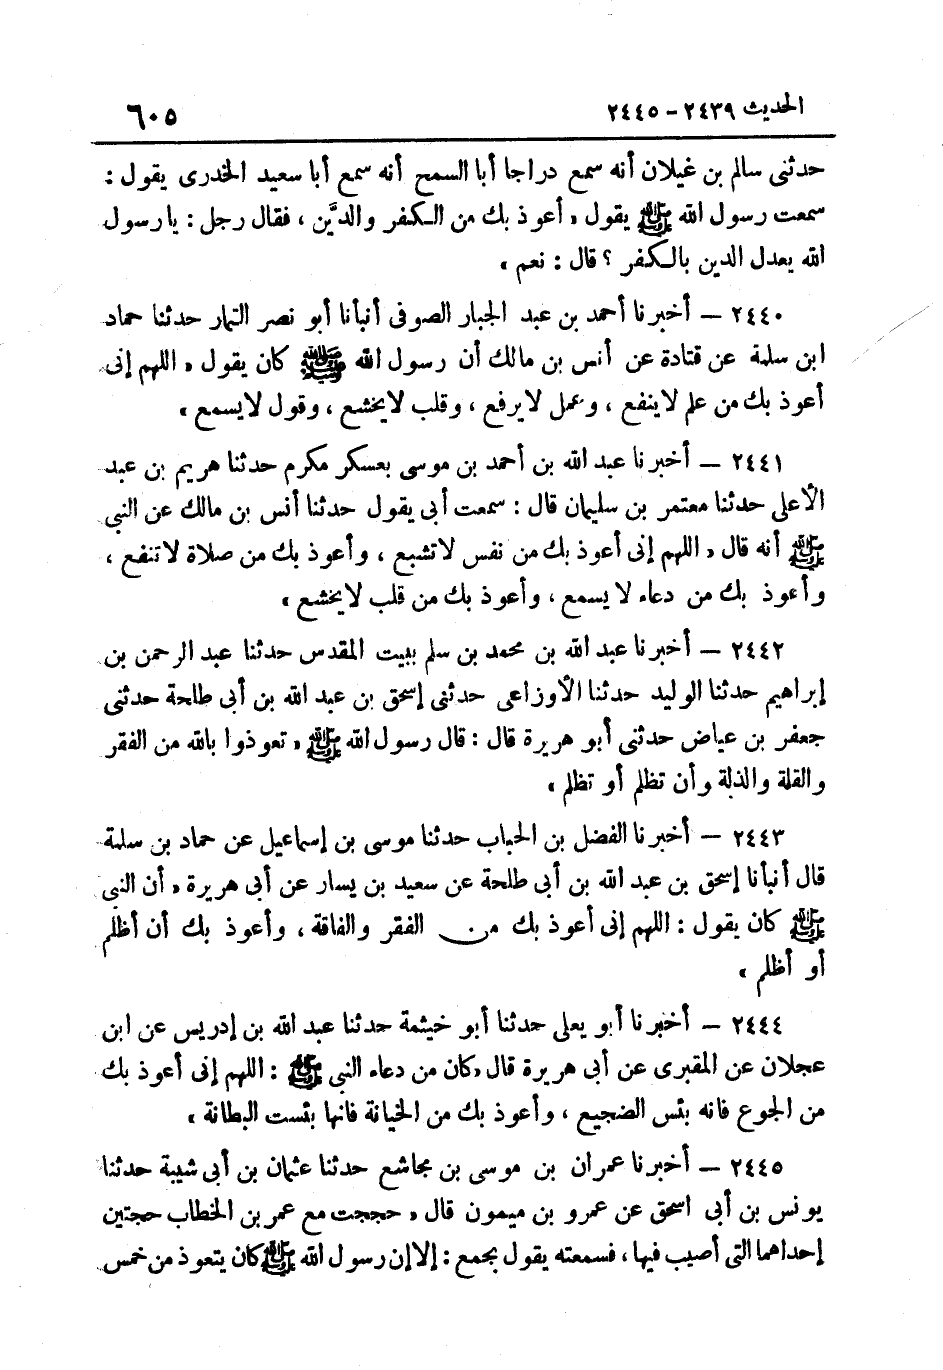 الحديث ٢٤٣٩ - ٢٤٤٥ ٦٠٥
حدثنى سالم بن غيلان أنه سمع دراجا أبا السمح أنه سمع أبا سعيد الخدرى يقول :
سمعت رسول الله ﷺ يقول « أعوذ بك من الكفر والدَّين ، فقال رجل : يا رسول
الله يعدل الدين بالكفر ؟ قال : نعم »
٢٤٤٠ – أخبرنا أحمد بن عبد الجبار الصوفى أنبأنا أبو نصر التمار حدثنا حماد
ابن سلمة عن قتادة عن أنس بن مالك أن رسول الله ﷺ كان يقول « اللهم إنى
أعوذ بك من علم لا ينفع ، وعمل لا يرفع ، وقلب لا يخشع ، وقول لا يسمع »
٢٤٤١ – أخبرنا عبد الله بن أحمد بن موسى بعسكر مكرم حدثنا هريم بن عبد
الأعلى حدثنا معتمر بن سليمان قال : سمعت أبى يقول حدثنا أنس بن مالك عن النبى
ﷺ أنه قال « اللهم إنى أعوذ بك من نفس لا تشبع ، وأعوذ بك من صلاة لا تنفع ،
وأعوذ بك من دعاء لا يسمع ، وأعوذ بك من قلب لا يخشع »
٢٤٤٢ – أخبرنا عبد الله بن محمد بن سلم ببيت المقدس حدثنا عبد الرحمن بن
إبراهيم حدثنا الوليد حدثنا الأوزاعى حدثنى إسحق بن عبد الله بن أبى طلحة حدثنى
جعفر بن عياض حدثنى أبو هريرة قال : قال رسول الله ﷺ « تعوذوا بالله من الفقر
والقلة والذلة وأن تظلم أو تظلم »
٢٤٤٣ – أخبرنا الفضل بن الحباب حدثنا موسى بن إسماعيل عن حماد بن سلمة
قال أنبأنا إسحق بن عبد الله بن أبى طلحة عن سعيد بن يسار عن أبى هريرة « أن النبى
ﷺ كان يقول : اللهم إنى أعوذ بك من الفقر والفاقة ، وأعوذ بك أن أظلم
أو أظلم »
٢٤٤٤ – أخبرنا أبو يعلى حدثنا أبو خيثمة حدثنا عبد الله بن إدريس عن ابن
عجلان عن المقبرى عن أبى هريرة قال « كان من دعاء النبى ﷺ : اللهم إنى أعوذ بك
من الجوع فانه بئس الضجيع ، وأعوذ بك من الخيانة فانها بئست البطانة »
٢٤٤٥ – أخبرنا عمران بن موسى بن مجاشع حدثنا عثمان بن أبى شيبة حدثنا
يونس بن أبى اسحق عن عمرو بن ميمون قال « حججت مع عمر بن الخطاب حجتين
إحداهما التى أصيب فيها ، فسمعته يقول بجمع : إلا إن رسول الله ﷺ كان يتعوذ من خمس